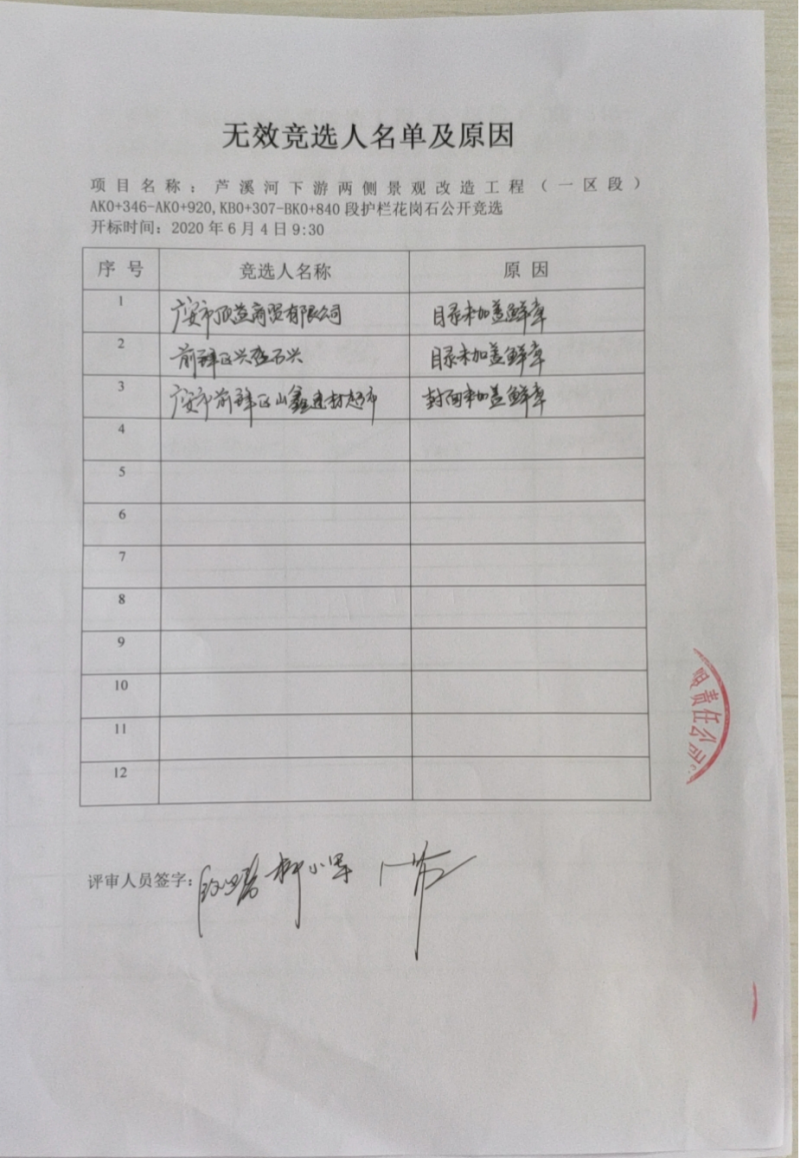 无效竞选人名单及原因
项目名称：芦溪河下游两侧景观改造工程（一区段）
AK0+346-AK0+920,KB0+307-BK0+840段护栏花岗石公开竞选
开标时间：2020年6月4日9:30
序号 竞选人名称 原因
1 广安市顶益商贸有限公司 目录未加盖鲜章
2 前锋区兴 石 目录未加盖鲜章
3 广安市前锋区山鑫建材超市 封面未加盖鲜章
4
5
6
7
8
9
10
11
12
评审人员签字：
责任公司